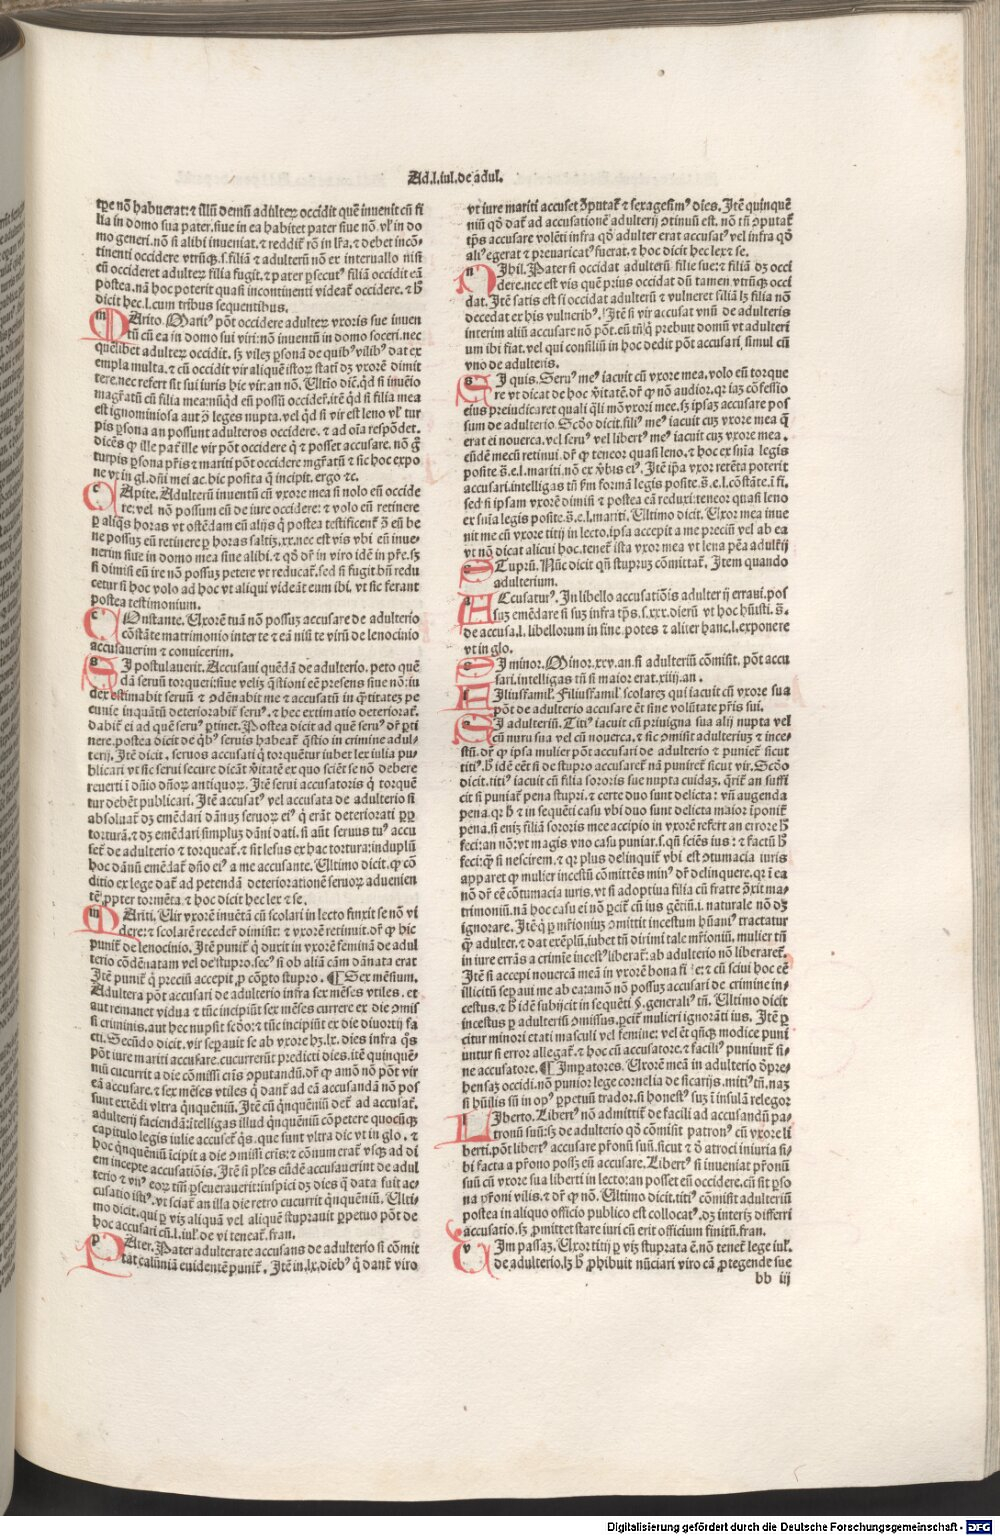 Ad.l.iul.de adul.
tꝛe nō habuerat: ⁊ illū demū adulterꝫ occidit quē inuenit cū fi
lia in domo sua pater. siue in ea habitet pater siue nō. vl' in do
mo generi. nō si alibi inueniat. ⁊ reddik̄ rō in lr̄a. ⁊ debet incō-
tinenti occidere vtrūqꝫ.s.filiā ⁊ adulterū nō ex interuallo nisi
eū occideret adulterꝫ filia fugit. ⁊ pater ꝑsecutꝰ filiā occidit eā
postea. nā hoc poterit quasi incontinenti videat̄ occidere. ⁊ h̄
dicit hec.l. cum tribus sequentibus.
m Arito. Maritꝰ pōt occidere adulterꝫ vxoris sue inuen
tū cū ea in domo sui viri: nō inuentū in domo soceri. nec
quēlibet adulterꝫ occidit. sꝫ vilez ꝑsonā de quibꝰ vilibꝰ dat ex
empla multa. ⁊ cū occidit vir aliquē istoꝝ statī dꝫ vxorē dimit
tere. nec refert sit sui iuris hic vir. an nō. Ultīo dic̄. qd si inuēio
mag̃ratū cū filia mea: nūqd eū possū occider̄. itē qd si filia mea
est ignominiosa aut ꝯ̄ leges nupta. vel qd si vir est leno vl' tur
pis ꝑsona an possunt adulteros occidere. ⁊ ad oīa respōdet.
dicēs ꝙ ille pat̄ ille vir pōt occidere q̇ ⁊ posset accusare. nō g̊
turpis ꝑsona pr̄is ⁊ mariti pōt occidere mgr̄atū ⁊ sic hoc expo
ne vt in gl. dn̄i mei ac. hic posita q̄ incipit. ergo ⁊c.
c Apite. Adulterū inuentū cū vxore mea si nolo eū occide
re: vel nō possum eū de iure occidere: ⁊ volo eū retinere
ꝑ aliq̄s horas vt ostēdam eū alijs q̇ postea testificent̄ ꝯ̄ eū be
ne possuꝫ eū retinere ꝑ horas saltiꝫ.xx. nec est vis vbi eū inue-
nerim siue in domo mea siue alibi. ⁊ qd̄ dr̄ in viro idē in pr̄e. sꝫ
si dimisi eū ire nō possuꝫ petere vt reducat̄. sed si fugit bn̄ redu
cetur si hoc volo ad hoc vt aliqui videāt eum ibi. vt sic ferant
postea testimonium.
c Onstante. Uxorē tuā nō possuꝫ accusare de adulterio
cōstāte matrimonio inter te ⁊ eā nisi te virū de lenocinio
accusauerim ⁊ conuicerim.
s I postulauerit. Accusaui quēdā de adulterio. peto quē
dā seruū torqueri: siue velis q̄stioni eē presens siue nō: iu
dex estimabit seruū ⁊ ꝯdēnabit me ⁊ accusatū in q̄titatez pe
cunie inquātū deteriorabit̄ seruꝰ. ⁊ hec extimatio deteriorat̄.
dabit̄ ei ad quē seruꝰ ꝑtinet. Postea dicit ad quē seruꝰ dr̄ ꝑti
nere. postea dicit de q̇bꝰ seruis habeat̄ q̄stio in crimine adul-
terij. Itē dicit. seruos accusati q̇ torquētur iubet lex iulia pu-
blicari vt sic serui secure dicāt v̄itatē ex quo sciēt se nō debere
reuerti ī dn̄io dn̄oꝝ antiquoꝝ. Itē serui accusatoris q̇ torquē
tur debēt publicari. Itē accusatꝰ vel accusata de adulterio si
absoluat̄ dꝫ emēdari dānuꝫ seruoꝝ eiꝰ q̇ erāt deteriorati ꝓpt
torturā. ⁊ dꝫ emēdari simpluꝫ dāni dati. si aūt seruus tuꝰ accu
set̄ de adulterio ⁊ torqueat̄. ⁊ sit lesus ex hac tortura: induplū
hoc dānū emēdat̄ dn̄o eiꝰ a me accusante. Ultimo dicit. ꝙ cō
ditio ex lege dat̄ ad petendā deteriorationē seruoꝝ aduenien
tē ꝓpter tormēta. ⁊ hoc dicit hec lex ⁊ se.
m Ariti. Uir vxorē inuētā cū scolari in lecto finxit se nō vi
dere: ⁊ scolarē recedēr̄ dimisit: ⁊ vxorē retinuit. dr̄ ꝙ hic
punit̄ de lenocinio. Itē punit̄ q̇ duxit in vxorē feminā de adul
terio cōdēnatam vel de stupro. secꝰ si ob aliā cām dānata erat
Itē punit̄ q̇ preciū accepit. ꝓ cōꝑto stupro. ¶ Sex mēsium.
Adultera pōt accusari de adulterio infra sex mēses vtiles. et
aut remanet vidua ⁊ tūc incipiūt sex mēses currere ex die ꝯmis
si criminis. aut hec nupsit secūdo: ⁊ tūc incipiūt ex die diuortij fa
cti. Secūdo dicit. vir seꝑauit se ab vxore hꝫ.lx. dies infra q̄s
pōt iure mariti accusare. cucurrerūt predicti dies. itē quinquē-
niū cucurrit a die cōmissi crīs ꝯputandū. dr̄ ꝙ amō nō pōt vir
eā accusare. ⁊ sex mēses vtiles q̇ dant̄ ad eā accusandā nō pos
sunt extēdi vltra q̇nquēniū. Itē cū q̇nquēniū det̄ ad accusat̄.
adulterij faciendā: ītelligas illud q̇nquēniū cōpetere quocūqꝫ
capitulo legis iulie accuset̄ q̇s. que sunt vltra dic vt in glo. ⁊
hoc q̇nquēniū īcipit a die ꝯmissi crīs: ⁊ cōnum erat̄ vsqꝫ ad di
em incepte accusatiōis. Itē si ples eūdē accusauerint de adul
terio ⁊ vnꝰ eorꝫ tm̄ ꝑseuerauerit: inspici dꝫ dies q̇ data fuit ac-
cusatio istiꝰ. vt sciat̄ an illa die retro cucurrit q̇nquēniū. Ulti-
mo dicit. qui ꝑ viꝫ aliquā vel aliquē stuprauit ꝑpetuo pōt de
hoc accusari cū.l.iul'.de vi teneat̄. fran.
p Ater. Pater adulterate accusans de adulterio si cōmit
tat calūniā euidentē punit̄. Itē in.lx.diebꝰ q̇ dant̄ viro
vt iure mariti accuset ꝯ̄putat̄ ⁊ sexagesimꝰ dies. Itē quinquē
niū qd̄ dat̄ ad accusationē adulterij ꝯtinuū est. nō tn̄ ꝯputat̄
tp̄s accusare volēti infra qd̄ adulter erat accusatꝰ vel infra qd̄
aliꝰ egerat ⁊ preuaricatꝰ fuerat. ⁊ hoc dicit hec lex ⁊ se.
n Ihil. Pater si occidat adulterū filie sue: ⁊ filiā dꝫ occi
dere. nec est vis quē prius occidat dū tamen vtrūqꝫ occi
dat. Itē satis est si occidat adulterū ⁊ vulneret filiā lꝫ filia nō
decedat ex his vulneribꝰ. Itē si vir accusat vnū de adulteris
interim aliū accusare nō pōt. eū tn̄ q̇ prebuit domū vt adulteri
um ibi fiat. vel qui consiliū in hoc dedit pōt accusari simul cū
vno de adulteris.
s I quis. Seruꝰ meꝰ iacuit cū vxore mea. volo eū torque
re vt dicat de hoc v̄itatē. dr̄ ꝙ nō audior. qꝛ iaꝫ cōfessio
eius preiudicaret quali q̄li mō vxori mee. sꝫ ipsaꝫ accusare pos
sum de adulterio. Scdo dicit. filiꝰ meꝰ iacuit cuꝫ vxore mea q̄
erat ei nouerca. vel seruꝰ vel libertꝰ meꝰ iacuit cuꝫ vxore mea.
eūdē mecū retinui. dr̄ ꝙ teneor quasi leno. ⁊ hoc ex snīa legis
posite s̄.e.l.mariti. nō ex v̄bis eiꝰ. Itē ip̄a vxor retēta poterit
accusari. intelligas tn̄ fm̄ formā legis posite s̄.e.l.cōstāte. ī fi.
sed si ipsam vxorē dimisi ⁊ postea eā reduxi: teneor quasi leno
ex snīa legis posite.s̄.e.l.mariti. Ultimo dicit. Uxor mea inue
nit me cū vxore titij in lecto. ipsa accepit a me preciū vel ab ea
vt nō dicat alicui hoc. tenet̄ ista vxor mea vt lena pēa adulterij
s Tuprū. Nūc dicit qn̄ stupruꝫ cōmittat̄. Item quando
adulterium.
a Ccusatuꝰ. In libello accusatiōis adulter ij erraui. pos
suꝫ emēdare si suꝫ infra tp̄s.l.xxx.dierū vt hoc hūisti.s̄.
de accusa.l. libellorum in fine. potes ⁊ aliter hanc.l.exponere
vt in glo.
s I minor. Minor.xxv.an. si adulteriū cōmisit. pōt accu
sari. intelligas tn̄ si maior erat.xiiij.an.
f Iliusfamil'. Filiusfamil'. scolares qui iacuit cū vxore sua
pōt de adulterio accusare ēt sine volūtate pr̄is sui.
s I adulteriū. Titiꝰ iacuit cū priuigna sua alij nupta vel
cū nuru sua vel cū nouerca. ⁊ sic ꝯmisit adulteriuꝫ ⁊ ince-
stū. dr̄ ꝙ ipsa mulier pōt accusari de adulterio ⁊ puniet̄ sicut
titiꝰ. h̄ idē eēt si de stupro accusaret̄ nā puniret̄ sicut vir. Scdo
dicit. titiꝰ iacuit cū filia sororis sue nupta cuidaꝫ. q̄rit̄ an suffi
cit si puniat̄ pena stupri. ⁊ certe duo sunt delicta: vn̄ augenda
pena. qꝛ h̄ ⁊ in sequēti casu vbi duo sunt delicta maior īponit̄
pena. si eniꝫ filiā sororis mee accipio in vxorē refert an errore h̄
feci: an nō: vt magis vno casu puniar.s.qn̄ sciēs iuꝰ: ⁊ factū h̄
feci: ꝙ si nescirem. ⁊ qꝛ plus delinquit̄ vbi est ꝯtumacia iuris
apparet ꝙ mulier incestū cōmittēs minꝰ dr̄ delinquere. qꝛ ī ea
nō dr̄ eē cōtumacia iuris. vt si adoptiua filia cū fratre ꝯ̄xit ma-
trimoniū. nā hoc casu ei nō ꝑcit̄ cū ius gētiū.i. naturale nō dꝫ
ignorare. Itē q̇ ꝑ mr̄ioniuꝫ ꝯmittit incestum hūaniꝰ tractatur
ꝙ̄ adulter. ⁊ dat exēplū. iubet tn̄ dirimi tale mr̄iniū. mulier tn̄
in iure errās a crimīe incestꝰ liberat̄: ab adulterio nō liberaret̄.
Itē si accepi nouercā meā in vxorē bona fi...: ⁊ cū sciui hoc eē
illicitū seꝑaui me ab eaꝛ amō nō possuꝫ accusari de crimine in-
cestus. ⁊ h̄ idē subijcit in sequēti §. generaliꝰ tn̄. Ultimo dicit
incestus ꝑ adulteriū ꝯmissus. ꝑcit̄ mulieri ignorāti ius. Itē ꝑ
citur minori etati masculi vel femine: vel ēt qn̄qꝫ modice puni
untur si error allegat̄. ⁊ hoc cū accusatore. ⁊ faciliꝰ puniunt̄ si-
ne accusatore. ¶ Imꝑatores. Uxorē meā in adulterio ꝯ̄pre-
hensaꝫ occidi. nō punior lege cornelia de sicarijs. mitiꝰ tn̄. naꝫ
si hūilis sū in opꝰ ꝑpetuū trador. si honestꝰ suꝫ ī insulā relegor
l Iberto. Libertꝰ nō admittit̄ de facili ad accusandū pa-
tronū suū: sꝫ de adulterio qd̄ cōmisit patronꝰ cū vxore li
berti. pōt libertꝰ accusare pr̄onū suū. sicut ⁊ ꝯ̄ atroci iniuria si-
bi facta a pr̄ono possꝫ eū accusare. Libertꝰ si inueniat pr̄onū
suū cū vxore sua liberti in lecto: an posset eū occidere. cū sit ꝑso
na pr̄oni vilis. ⁊ dr̄ ꝙ nō. Ultimo dicit. titiꝰ cōmisit adulteriū
postea in aliquo officio publico est collocatꝰ. dꝫ interiꝫ differri
accusatio. sꝫ ꝓmittet stare iuri cū erit officium finitū. fran.
v Im passaꝫ. Uxor titij ꝑ viꝫ stuprata ē. nō tenet̄ lege iul'.
de adulterio. lꝫ h̄ ꝓhibuit nūciari viro cā ꝓtegende sue
bb iij
Digitalisierung gefördert durch die Deutsche Forschungsgemeinschaft - DFG